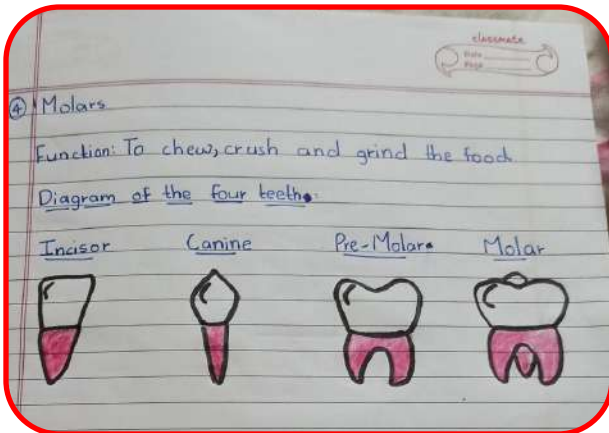 classmate
Date
Page
④ Molars
Function: To chew, crush and grind the food
Diagram of the four teeth.
Incisor Canine Pre-Molar Molar